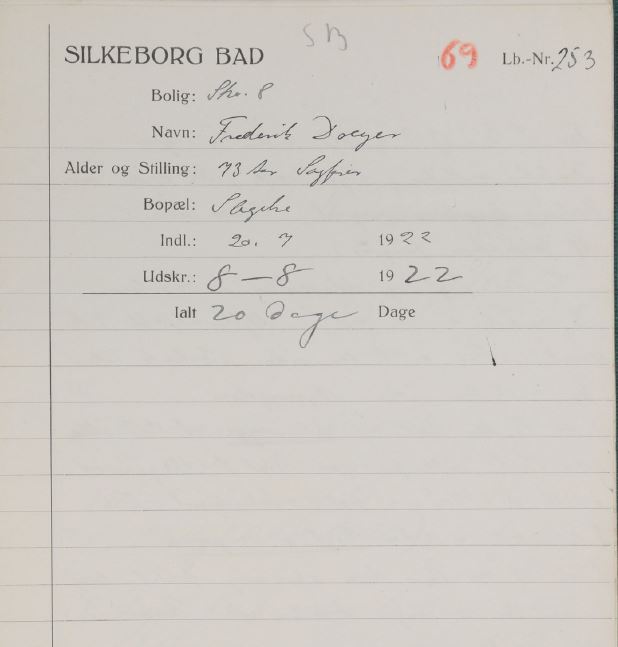 SB
SILKEBORG BAD 69 Lb.-Nr. 253
Bolig: 8
Navn: Frederik Dreyer
Alder og Stilling: 73 Aar Sagfører
Bopæl: Slagelse
Indl.: 20. 7 1922
Udskr.: 8-8 1922
Ialt 20 Dage Dage